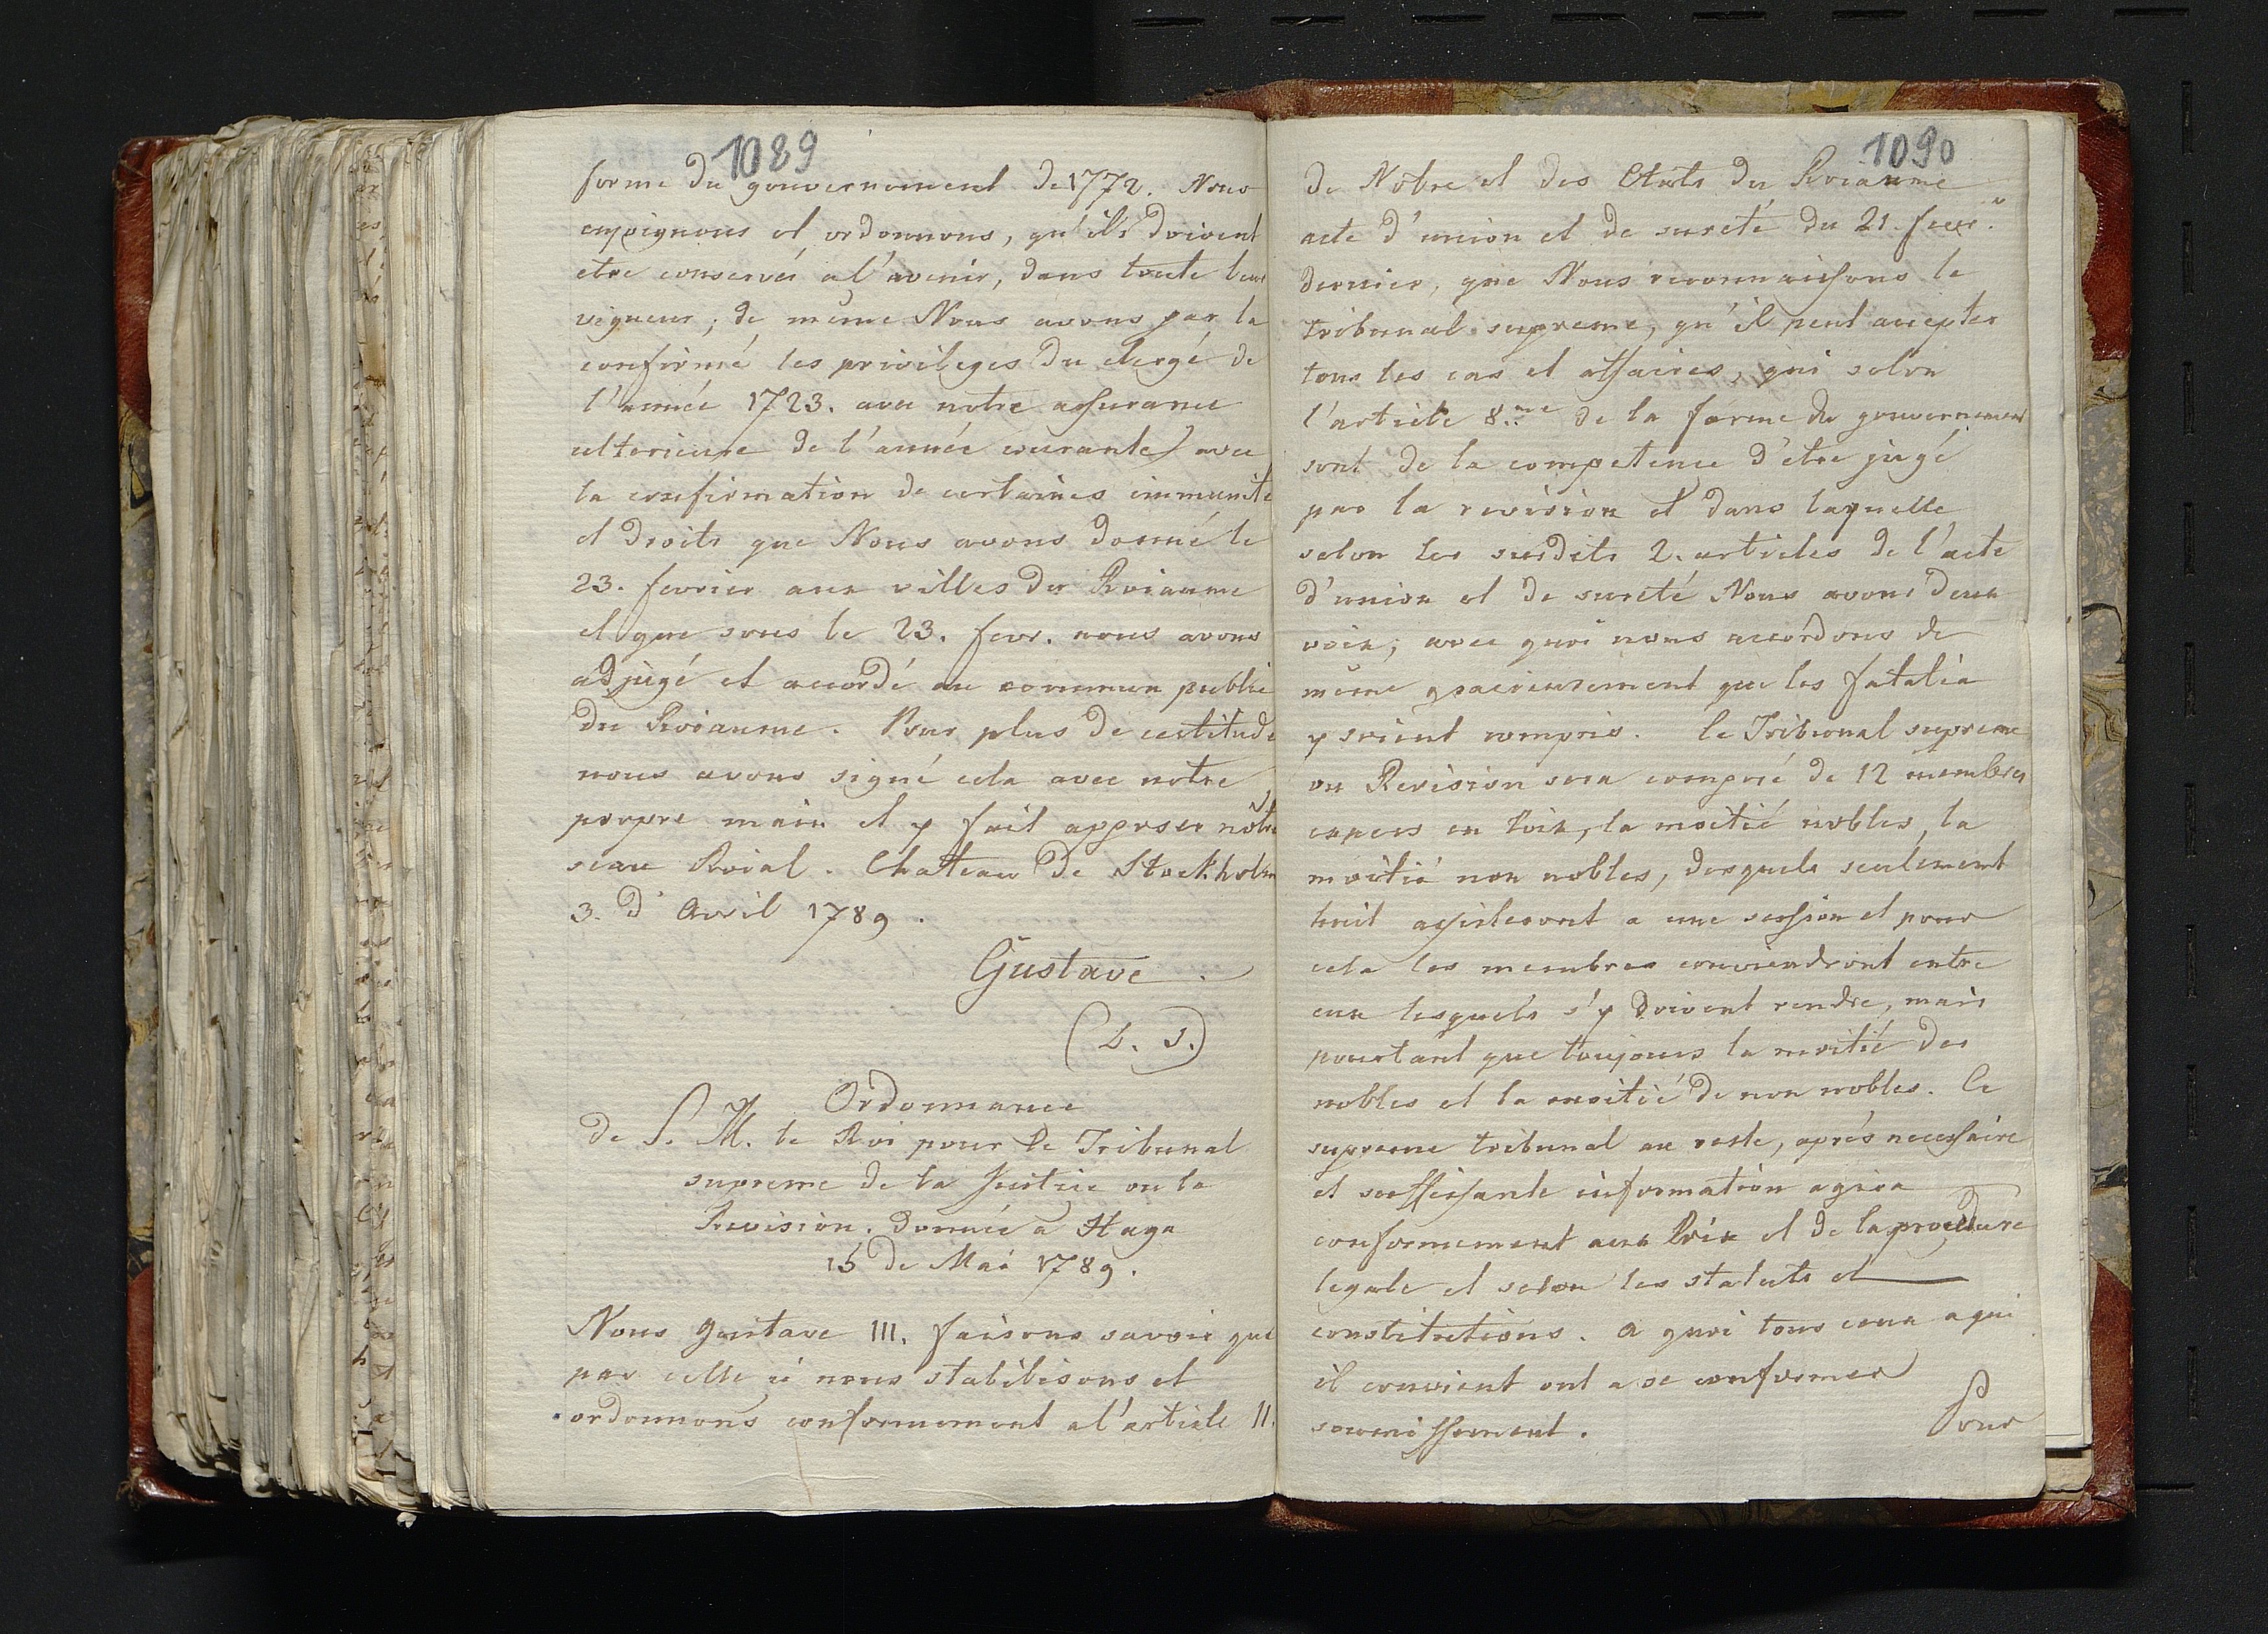 1089
forme du gouvernement de 1772. Nous
enjoignons et ordonnons, qu'ils doivent
etre conservés a l'avenir, dans toute leur
vigueur; de même Nous avons par la
confirmé les privileges du clergé de
l'année 1723. avec notre assurance
ulterieure de l'année courante) avec
la confirmation de certaines immunité
et droits que Nous avons donné le
23. fevrier aux villes du Roiaume
et que sous le 23. fevr. nous avons
adjugé et accordé au commun public
du Roiaume. Pour plus de certitude
nous avons signé cela avec notre
propre main et y fait apposer nôtre
sceau Roial. Chateau de Stockholm
3. d'Avril 1789.
Gustave.
(L. S.)
Ordonnance
de S. M. le Roi pour le Tribunal
supreme de la Justice ou la
Revision. donnée a Haga
15 de Mai 1789.
Nous Gustave III. faisons savoir que
par celle ci nous stabilisons et
ordonnons conformement a l'article II.
1090
de Nôtre et des Etats du Roiaume
acte d'union et de sureté du 21. fevr.
dernier, que Nous reconnaissons le
tribunal supreme, qu'il peut accepter
tous les cas et affaires, qui selon
l'article 8.me de la forme du gouvernement
sont de la competence d'etre jugé
par la revision et dans laquelle
selon les susdits 2. articles de l'acte
d'union et de sureté Nous avons deux
voix; avec quoi nous accordons de
même gracieusement que les fatalia
y soient compris. Le Tribunal supreme
ou Revision sera composé de 12 membres
expers en loix, la moitié nobles, la
moitié non nobles, desquels seulement
huit assisteront a une session et pour
cela les membres conviendront entre
eux lesquels s'y doivent rendre, mais
pourtant que toujours la moitié des
nobles et la moitié de non nobles. Ce
supreme tribunal au reste, aprés necessaire
et suffisante information agira
conformement aux loix et de la procedure
legale et selon les statuts et
constitutions. a quoi tous ceux a qui
il convient ont a se conformer
soumissement.
Pour